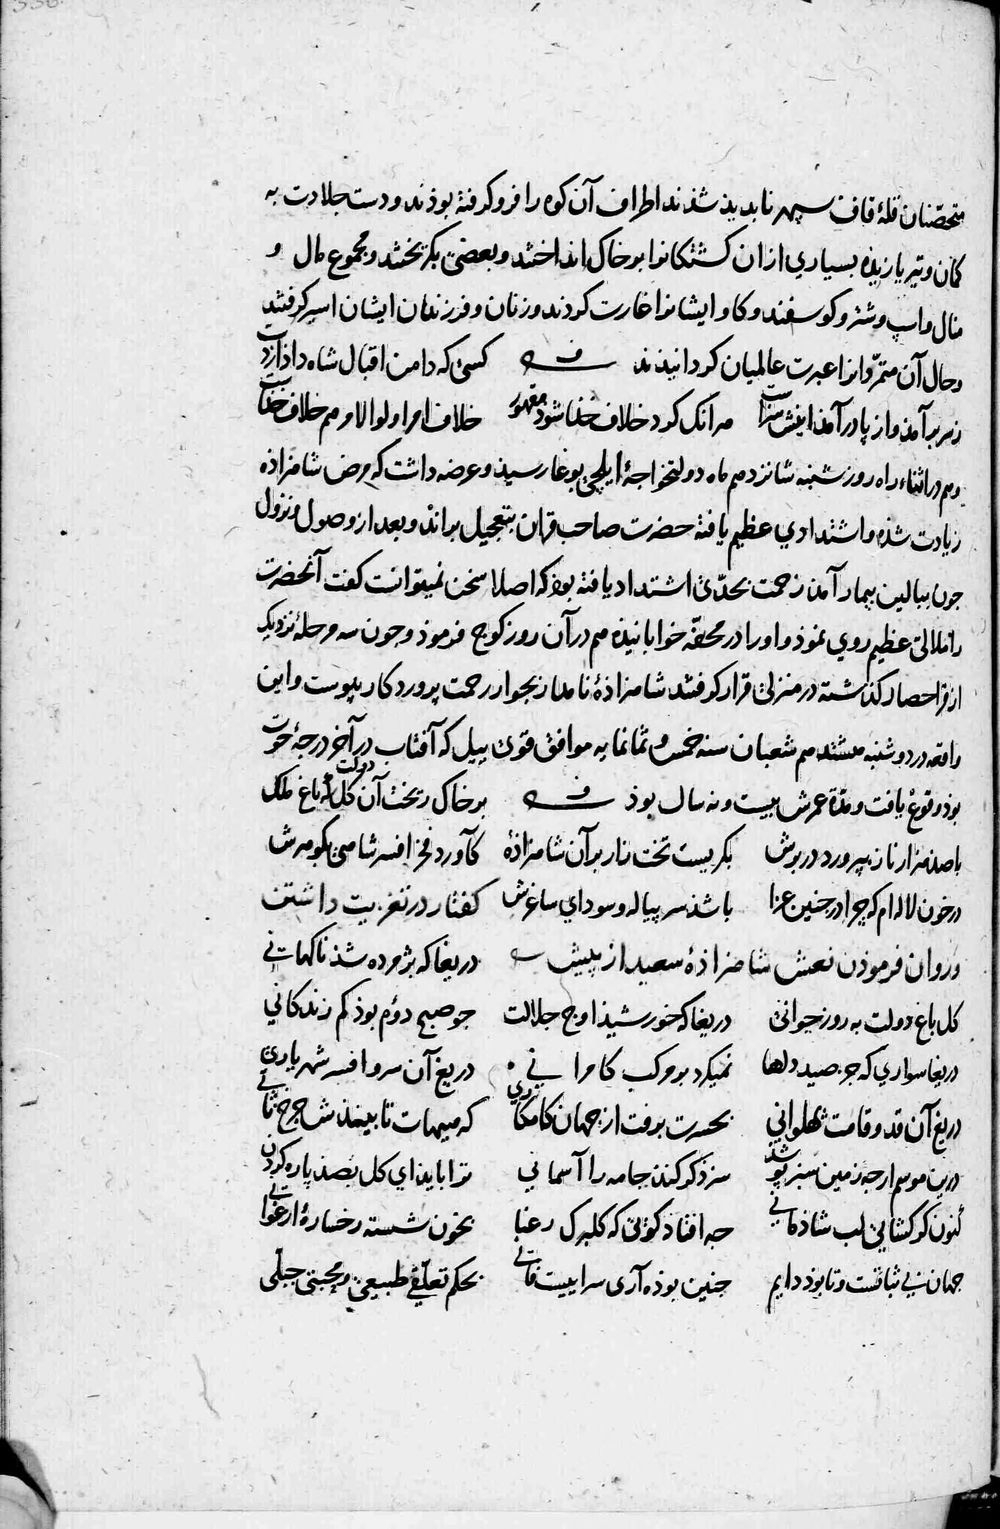 متحصّنان قلهٔ قاف سپهر نابدید شذند اطراف آن کوه را فرو کرفتهٔ بوذند و دست جلادت به
کمان و تیر یازیذه بسیاري از ان کشتکانرا بر خاک انداختند و بعضي بکریختند و مجموع مال و
منال و اسپ و شتر و کوسفند و کاو ایشانرا غارت کردند و زنان و فرزندان ایشان اسیر کرفتند
و حال آن متمرّدانرا عبرت عالمیان کردانیدند کسی که دامن اقبال شاه داذ از دست
ز سر برآمد و از پا درآمد اینش سزاست هر انک کرد خلاف خذا شود مقهور خلاف امر اولوالامر هم خلاف خذاست
و هم در اثناء راه روز شنبه شانزدهم ماه دولتخواجهٔ ایلچي بوغا رسیذ و عرضه داشت که مرض شاهزاذه
زیادت شذه و اشتدادي عظیم یافته حضرت صاحب قران بتعجیل براند و بعد از وصول و نزول
جون ببالین بیمار آمد زحمت بحدّي اشتداد یافته بوذ که اصلا سخن نمیتوانست کفت آنحضرت
را ملالتي عظیم روي نموذ و او را در محفّه خوابانیذه هم در آن روز کوج فرموذ و جون سه مرحله نزدیک
از قراحصار کذشته در منزلي قرار کرفتند شاهزاذهٔ نامدار بجوار رحمت پروردکار پیوست و این
واقعه در دوشنبه هشتدهم شعبان سنه خمس و ثمانمایه موافق قوي ییل که آفتاب در آخر درجهٔ حوت
بوذ وقوع یافت و مدّة عمرش بیست و نه سال بوذ بر خاک ریخت آن کل دولت که باغ ملک
با صد هزار ناز بپرورد در برش بکریست تخت زار بر آن شاهزاذهٔ کآورد فخر افسر شاهي بکوهرش
در خون لاله ام که چرا در جنین عزا باشذ سر پیاله و سوداي ساغرش کفتار در تعزیت داشتن
و روان فرموذن نعش شاهزاذهٔ سعید از پیش دریغا که پژمرده شذ ناکهاني
کل باغ دولت به روز جواني دریغا که خورشیذ اوج جلالت جو صبح دوم بوذ کم زندکاني
دریغا سواري که جز صید دلها نمیکرد بر مرکب کامراني دریغ آن سر و افسر شهریاري
دریغ آن قد و قامت پهلواني بحسرت برفت از جهان کامکاري که هیهات تا بیندش جرخ ثاني
درین موسم ار جه زمین سبز پوشذ سزذ کر کند جامه را آسماني ترا باید اي کل بصذ پاره کردن
کنون کر کشایي لب شاذماني چه افتاد کوئي که کلبرک رعنا بخون شسته رخسارهٔ ارغواني
جهان بي ثباتست و تا بوذ دایم جنین بوذه آري سراییست فاني بحکم تعلّقي طبیعي و محبتي جبلّي